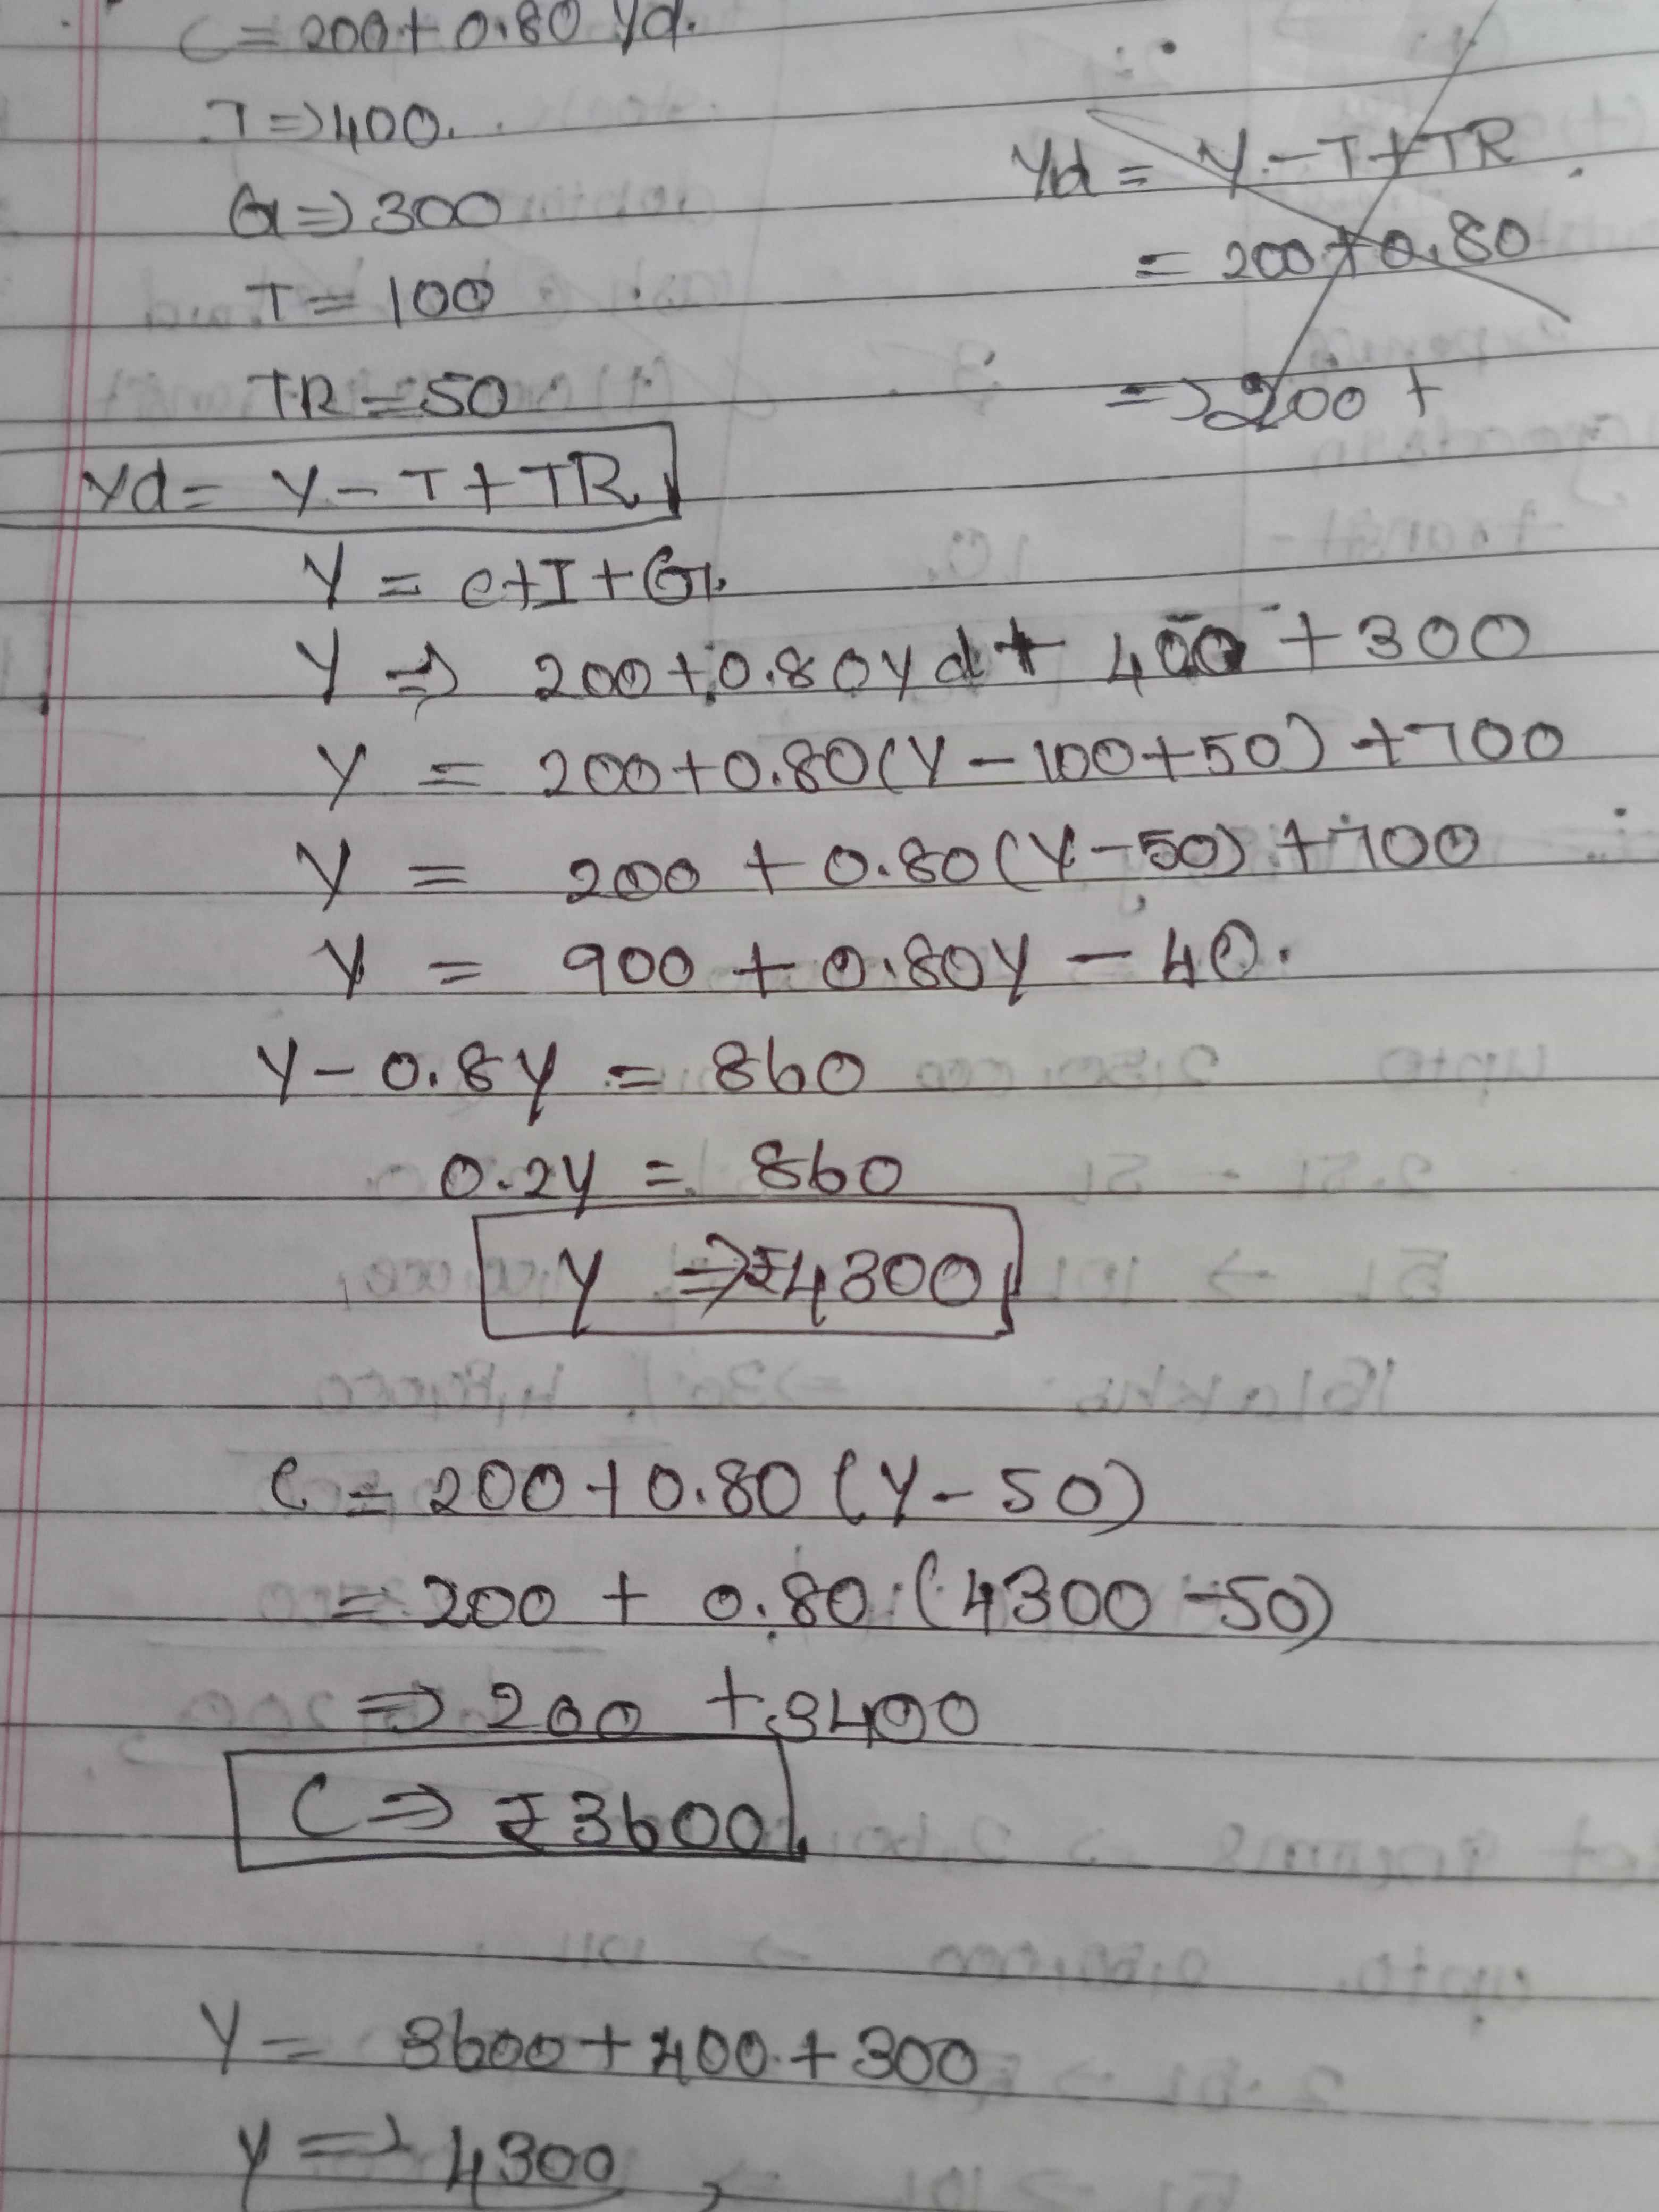 C = 200 + 0.80 Yd.
I => 400.
G => 300
T = 100
TR = 50
Yd = Y - T + TR
= 200 + 0.80
=> 200 +
Yd = Y - T + TR
Y = C + I + G.
Y => 200 + 0.80 Yd + 400 + 300
Y = 200 + 0.80 (Y - 100 + 50) + 700
Y = 200 + 0.80 (Y - 50) + 700
Y = 900 + 0.80Y - 40.
Y - 0.8Y = 860
0.2Y = 860
Y => ₹4300
C = 200 + 0.80 (Y - 50)
= 200 + 0.80 (4300 - 50)
=> 200 + 3400
C => ₹3600
Y = 3600 + 400 + 300
Y => 4300